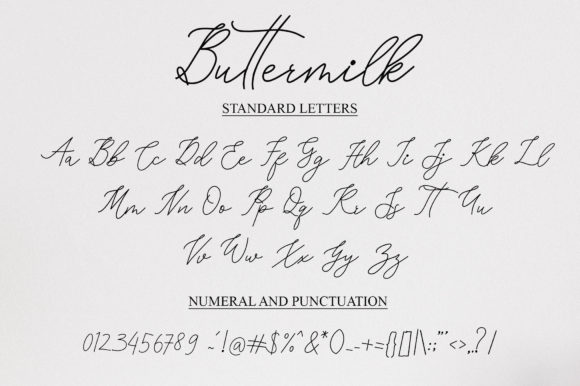 Buttermilk
STANDARD LETTERS
Aa Bb Cc Dd Ee Ff Gg Hh Ii Jj Kk Ll
Mm Nn Oo Pp Qq Rr Ss Tt Uu
Vv Ww Xx Yy Zz
NUMERAL AND PUNCTUATION
0123456789 ~´!@#$%^&*()_-+={}[]|\:;"'<>,.?/